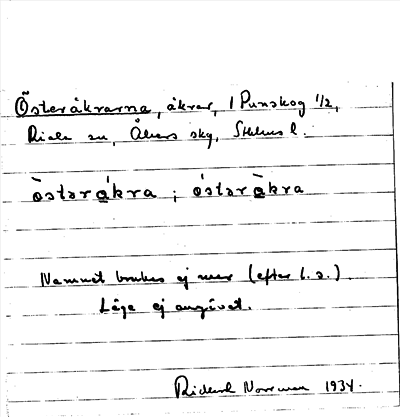 Österåkrarna, åkrar, 1 Punskog 1/2,
Riala sn, Åkers skg, Sthlms l.
ö̀starákra ; östaràkra
Namnet brukas ej mer (efter l.s.).
Läge ej angivet.
Rickard Norrman 1934.